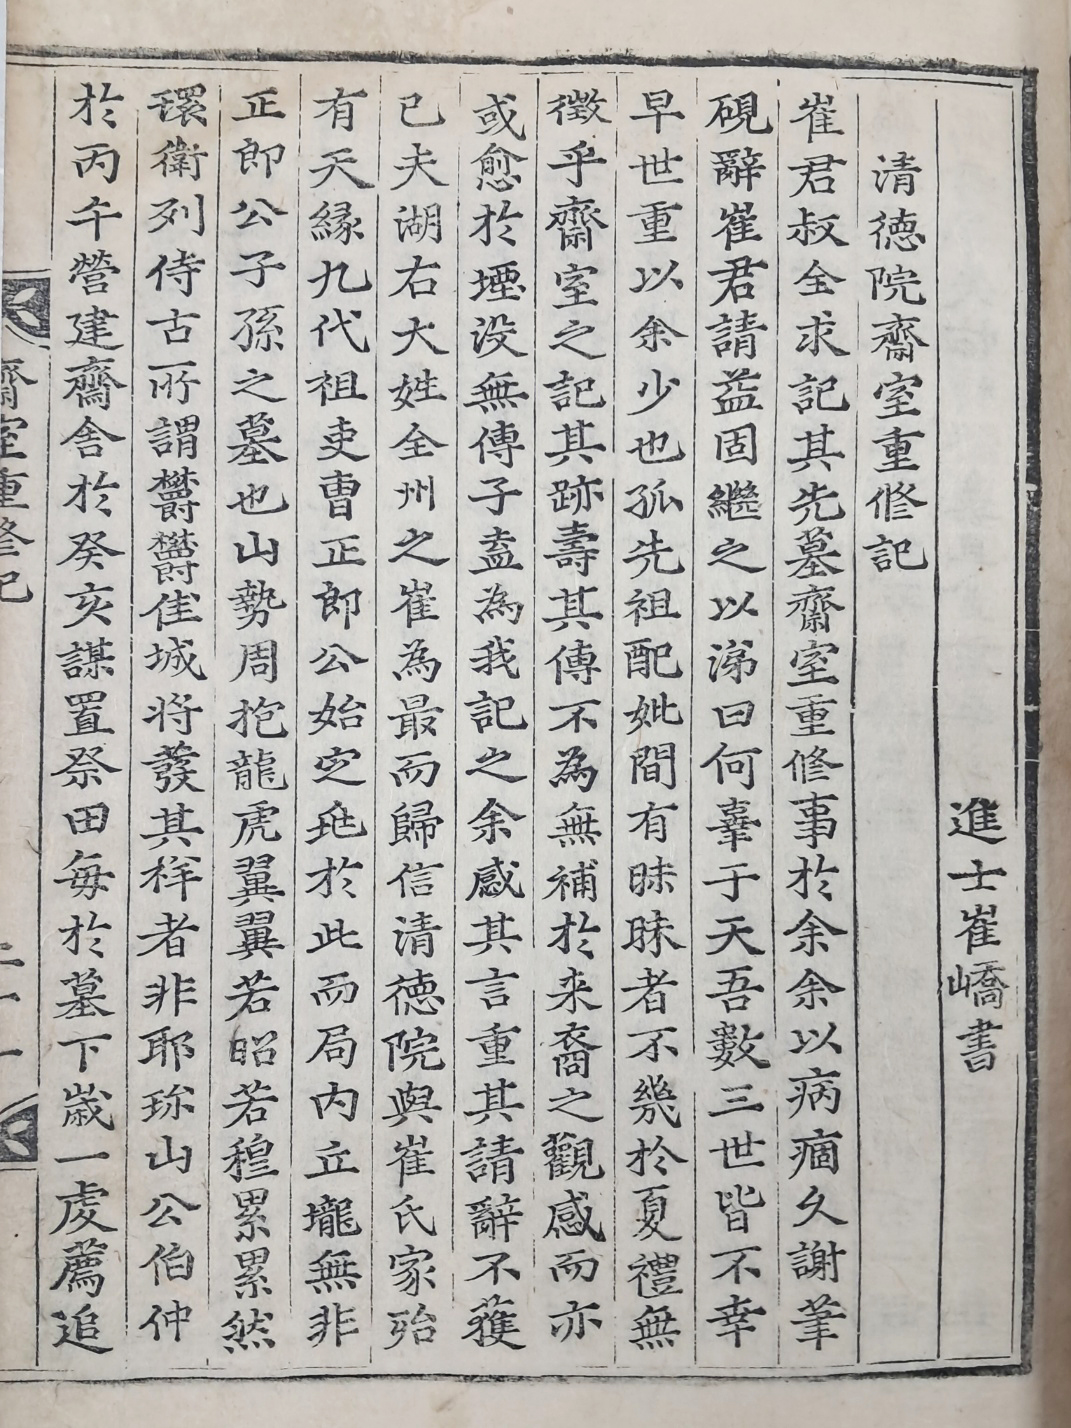 進士崔嶠書
清德院齋室重修記
崔君叔全求記其先墓齋室重修事於余余以病痼久謝筆
硯辭崔君請益固繼之以涕曰何辜于天吾數三世皆不幸
早世重以余少也孤先祖配妣間有昧昧者不幾於夏禮無
徵乎齋室之記其跡壽其傳不為無補於来裔之觀感而亦
或愈於堙没無傳子盍為我記之余感其言重其請辭不獲
已夫湖右大姓全州之崔為最而歸信清德院與崔氏家殆
有天緣九代祖吏曺正郎公始㝎兆於此而局内立壠無非
正郎公子孫之墓也山勢周抱龍虎翼翼若昭若穆累累然
環衛列侍古所謂欝欝佳城将發其祥者非耶珎山公伯仲
於丙午營建齋舍於癸亥謀置祭田每於墓下歲一虔薦追
齋室重修記
二十一